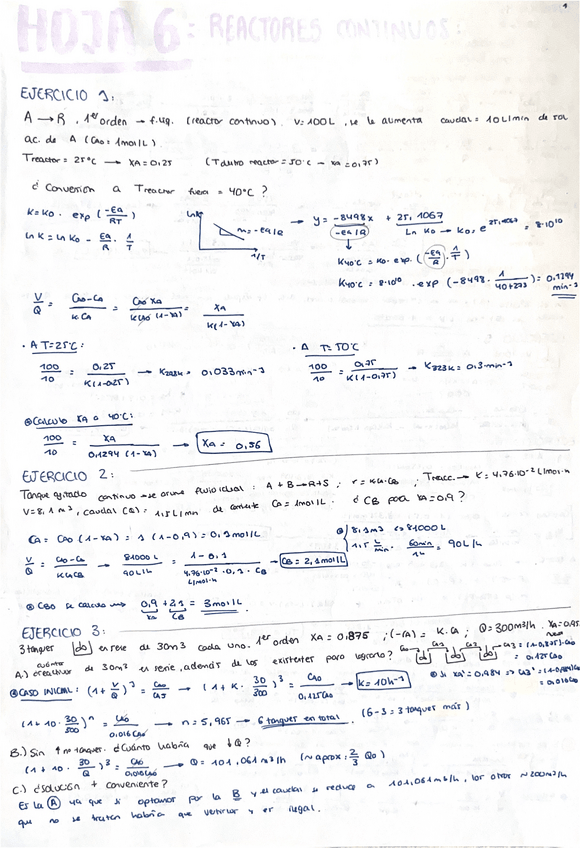 1
HOJA 6: REACTORES CONTINUOS:
EJERCICIO 1:
A → R, 1er orden → f. liq. (reactor continuo). V=100L, se le aumenta caudal = 10L/min de sol
ac. de A (CA0 = 1mol/L).
Treactor = 25°C → XA=0,25 (Tdutro reactor = 50°C → XA=0,75)
¿Conversión a Treactor fuera = 40°C?
K=K0 · exp (-EA/RT)
ln K = ln K0 - EA/R · 1/T
ln K
m = -EA/R
1/T
→ y = -8498x + 25,1067
-EA/R
Ln K0 → K0 = e^25,1067 = 8·10^10
K40°C = K0 · exp. (-EA/R · 1/T)
K40°C = 8·10^10 · exp (-8498 · 1/(40+273)) = 0,1294 min-1
V/Q = (CA0-CA)/(K CA) = (CA0 XA)/(K CA0 (1-XA)) = XA/(K(1-XA))
· A T=25°C:
100/10 = 0,25/(K(1-0,25)) → K298K = 0,033min-1
· A T=50°C
100/10 = 0,75/(K(1-0,75)) → K323K = 0,3min-1
Calculo XA a 40°C:
100/10 = XA/(0,1294 (1-XA)) → XA = 0,56
EJERCICIO 2:
Tanque agitado continuo → se asume fluio ideal: A + B → R+S; r = K CA·CB; Treacc. → K = 4,76·10^-2 L/mol·h
V=8,1 m3, caudal (Q) = 1,5 L/min de corriente CA = 1mol/L. ¿CB para XA=0,9?
CA = CA0 (1-XA) = 1 (1-0,9) = 0,1mol/L
8,1m3 <=> 8100L
1,5 L/min · 60min/1h = 90L/h
V/Q = (CA0-CA)/(K CA CB) → 8100L/90L/h = (1-0,1)/(4,76·10^-2 L/mol·h · 0,1 · CB) → CB = 2,1mol/L
CB0 se calcula → 0,9 + 2,1 = 3mol/L
XA CB
EJERCICIO 3:
3 tanques en serie de 30m3 cada uno. 1er orden XA = 0,875; (-rA) = K·CA; Q=300m3/h.
A.) ¿cuánto reactivar de 30m3 en serie, además de los existentes para lograrlo?
CASO INICIAL: (1 + K V/Q)^3 = CA0/CA3 → (1 + K · 30/300)^3 = CA0/0,125CA0 → K = 10h-1
(1 + 10 · 30/300)^n = CA0/0,016CA0 → n = 5,965 → 6 tanques en total. (6-3 = 3 tanques más)
B.) Sin ↑ nº tanques. ¿Cuánto habría que ↓Q?
(1 + 10 · 30/Q)^3 = CA0/0,016CA0 → Q = 101,061m3/h (~aprox: 2/3 Q0)
C.) ¿Solución + conveniente?
Es la A ya que si optamos por la B y el caudal se reduce a 101,061m3/h, los otros ~200m3/h
que no se tratan habría que verterlos y es ilegal.